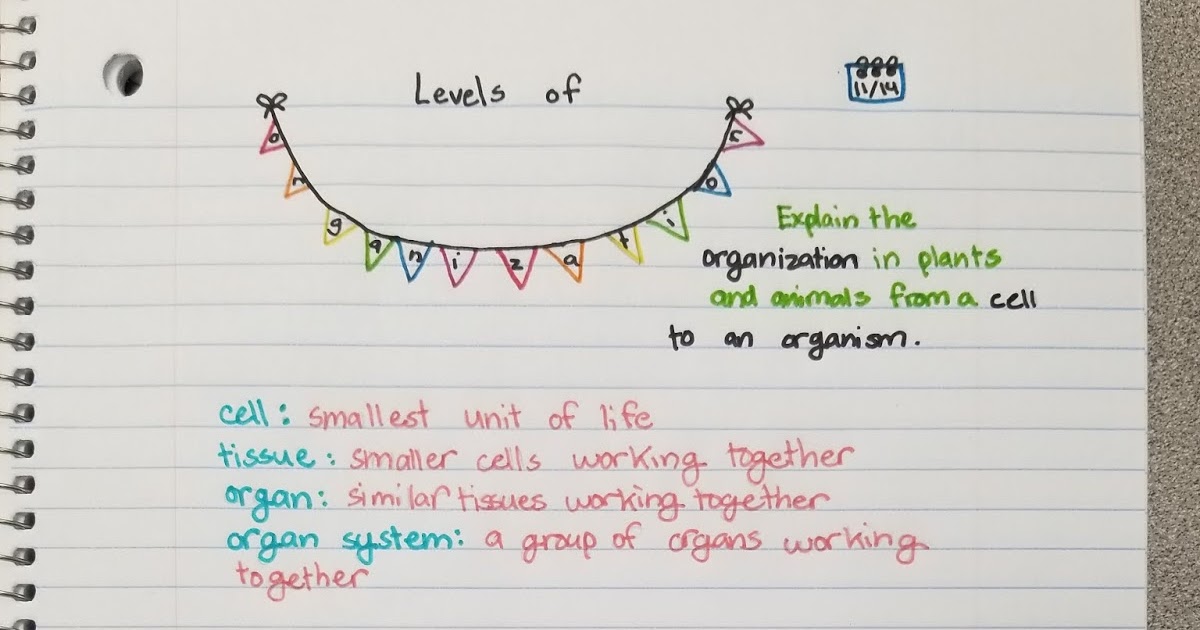 Levels of
11/14
organizations
Explain the
organization in plants
and animals from a cell
to an organism.
cell: smallest unit of life
tissue: smaller cells working together
organ: similar tissues working together
organ system: a group of organs working
together